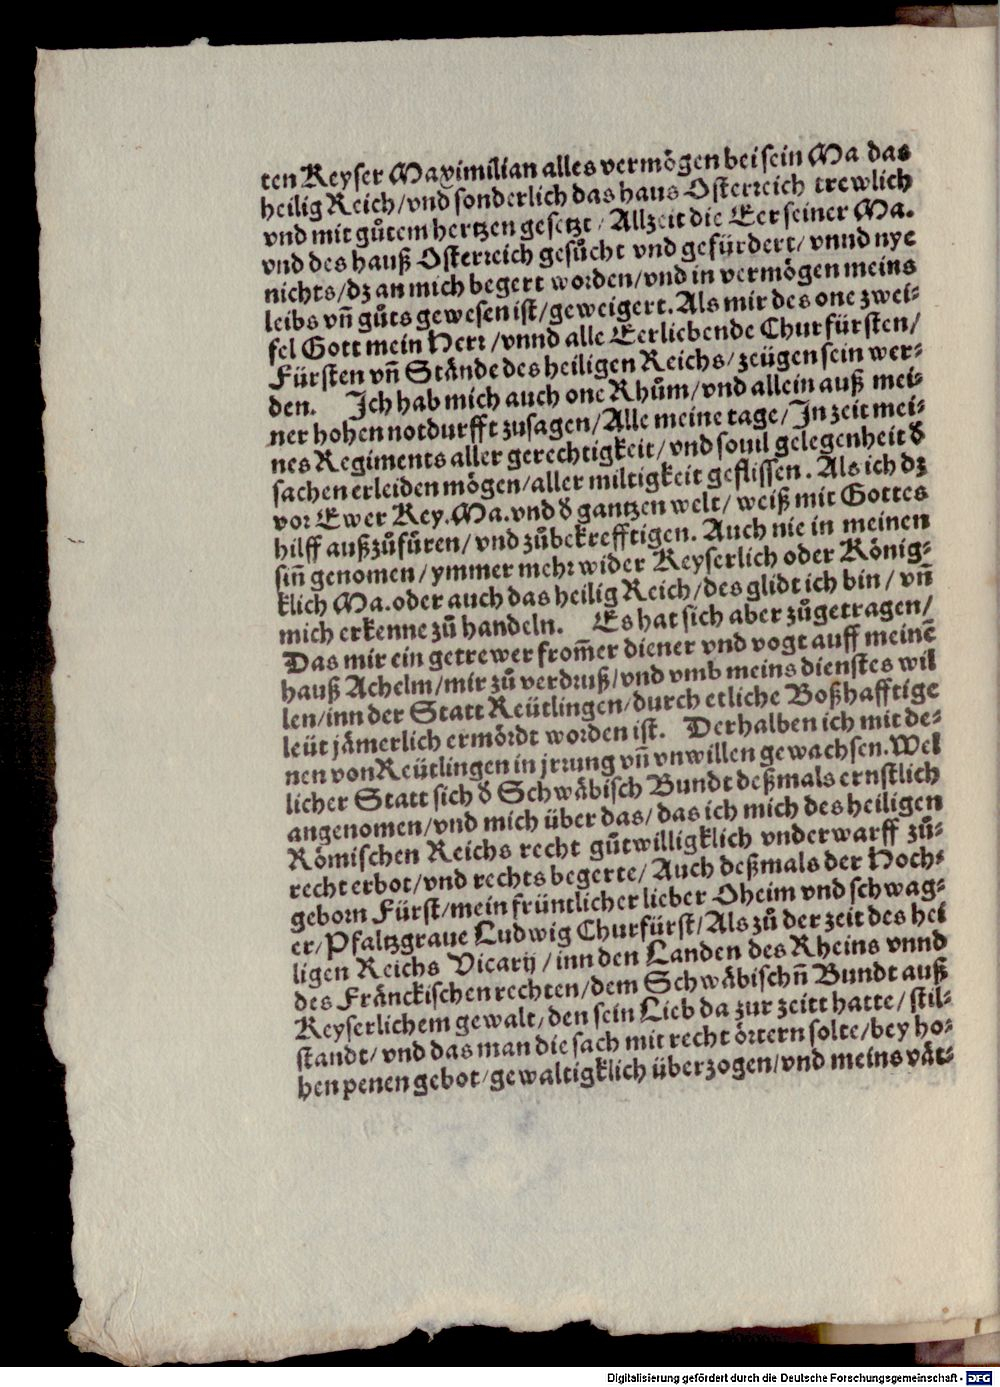 ten Keyser Maximilian alles vermögen bei sein Ma das
heilig Reich/vnd sonderlich das haus Osterreich trewlich
vnd mit gůtem hertzen gesetzt/Allzeit die Eer seiner Ma.
vnd des hauß Osterreich gesůcht vnd gefürdert/vnnd nye
nichts/dz an mich begert worden/vnd in vermögen meins
leibs vñ gůts gewesen ist/geweigert. Als mir des one zwei-
fel Gott mein Herr/vnnd alle Eerliebende Churfürsten/
Fürsten vñ Stände des heiligen Reichs/zeügen sein wer-
den. Ich hab mich auch one Rhům/vnd allein auß mei-
ner hohen notdurfft zusagen/Alle meine tage/In zeit mei-
nes Regiments aller gerechtigkeit/vnd souil gelegenheit đ
sachen erleiden mögen/aller miltigkeit geflissen. Als ich dz
vor Ewer Key.Ma.vnd đ gantzen welt/weiß mit Gottes
hilff außzůfüren/vnd zůbekrefftigen. Auch nie in meinen
siñ genomen/ymmer mehr wider Keyserlich oder König-
klich Ma.oder auch das heilig Reich/des glidt ich bin/vñ
mich erkenne zů handeln. Es hat sich aber zůgetragen/
Das mir ein getrewer from̄er diener vnd vogt auff meinē
hauß Achelm/mir zů verdruß/vnd vmb meins dienstes wil
len/inn der Statt Reütlingen/durch etliche Boßhafftige
leüt jämerlich ermördt worden ist. Derhalben ich mit de-
nen von Reütlingen in jrrung vñ vnwillen gewachsen.Wel
licher Statt sich đ Schwäbisch Bundt deßmals ernstlich
angenomen/vnd mich über das/das ich mich des heiligen
Römischen Reichs recht gůtwilligklich vnderwarff zů-
recht erbot/vnd rechts begerte/Auch deßmals der Hoch-
geborn Fürst/mein früntlicher lieber Oheim vnd schwag-
er/Pfaltzgraue Ludwig Churfürst/Als zů der zeit des hei
ligen Reichs Vicarij/inn den Landen des Rheins vnnd
des Fränckischen rechten/dem Schwäbischñ Bundt auß
Keyserlichem gewalt/den sein Lieb da zur zeitt hatte/stil-
standt/vnd das man die sach mit recht örtern solte/bey ho-
hen penen gebot/gewaltigklich überzogen/vnd meins vät-
Digitalisierung gefördert durch die Deutsche Forschungsgemeinschaft - DFG